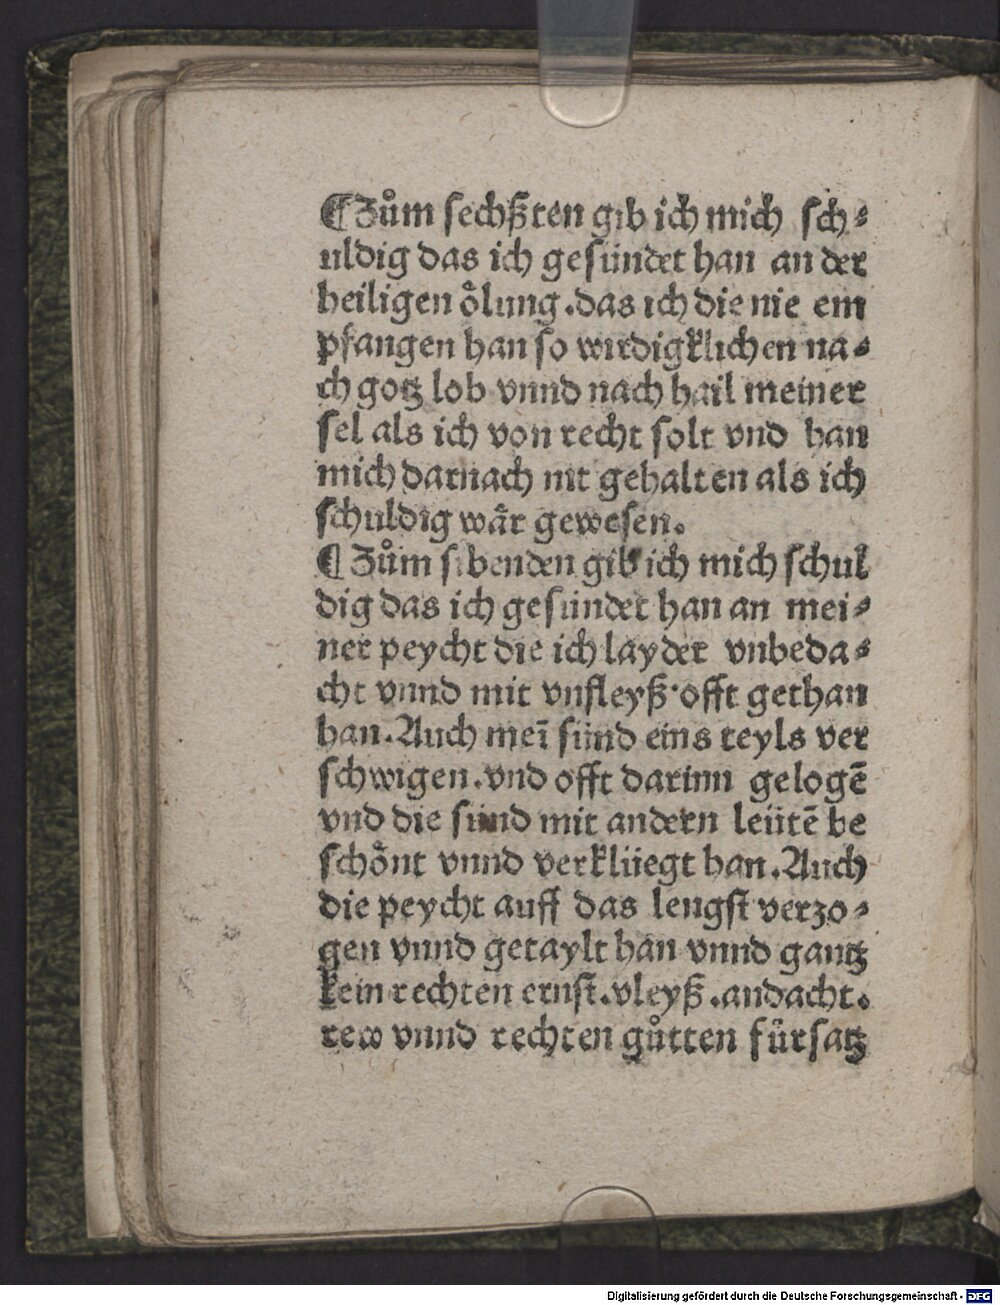 ¶Zům sechßten gib ich mich sch⸗
uldig das ich gesündet han an der
heiligen oͤlung .das ich die nie em
pfangen han so wirdigklichen na⸗
ch gotz lob vnnd nach hail meiner
sel als ich von recht solt vnd han
mich darnach nit gehalten als ich
schuldig waͤr gewesen.
¶ Zům sibenden gib ich mich schul
dig das ich gesündet han an mei⸗
ner peycht die ich layder vnbeda⸗
cht vnnd mit vnfleyß·offt gethan
han.Auch meī sünd eins teyls ver
schwigen.vnd offt darinn gelogē
vnd die sünd mit andern leütē be
schoͤnt vnnd verklüegt han.Auch
die peycht auff das lengst verzo⸗
gen vnnd getaylt han vnnd gantz
kein rechten ernst.vleyß.andacht.
rew vnnd rechten gůtten fürsatz
Digitalisierung gefördert durch die Deutsche Forschungsgemeinschaft - DFG